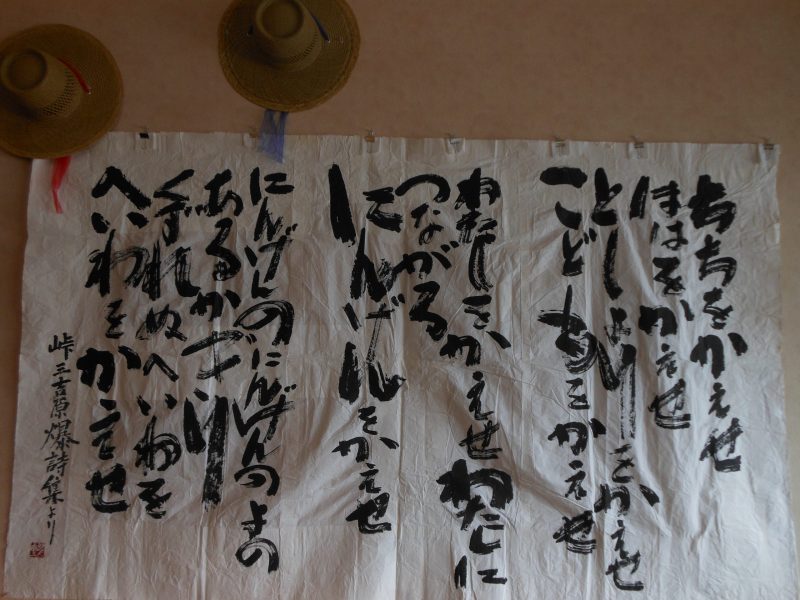 ちちをかえせ
ははをかえせ
としよりをかえせ
こどもをかえせ
わたしをかえせ わたしに
つながる
にんげんをかえせ
にんげんの にんげんのよの
あるかぎり
くずれぬへいわを
へいわをかえせ
峠三吉原爆詩集より